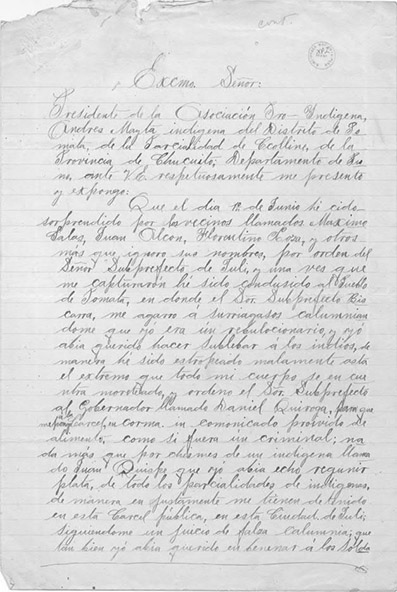 cont.
Excmo. Señor:
Presidente de la Asociación Pro-Indigena,
Andres Mayta indigena del Distrito de Po-
mata, de la Parcialidad de Ccolline, de la
Provincia de Chucuito, Departamento de Pu-
no, ante V.E. respetuosamente me presento
y expongo:
Que el dia 12 de Junio hi cido
sorprendido por los vecinos llamados Maximo
Salas, Juan Alcon, Florentino Poza, y otros
más que ignoro sus nombres, por orden del
Señor Subprefecto de Juli, y una ves que
me capturarón hé sido condusido al Pueblo
de Pomata, en donde el Sór. Subprefecto Bis
carra, me agarro a surriagasos calumnian
dome que yó era un rebulocionario, y yó
abia querido hacer sublebar á los indios, de
manera hi sido estropeado malamente asta
el extremo que todo mi cuerpo se en cue
ntra moreteado, ordeno el Sór Subprefecto
al Gobernador llamado Daniel Quiroga, para que
me ponga carcel, en corma in comunicado proivido de
alimento, como si fuera un criminal; na
da más que por chismes de un indigena llama
do Juan Quispe, que yó abia echo requnir
plata, de todo los parcialidades de indigenas,
de manera en justamente me tienen detenido
en esta Carcel pública, en esta Ciudad de Juli;
siguiendome un juicio de falsa calumnia; que
tan bien yó abia querido en benenar á los solda